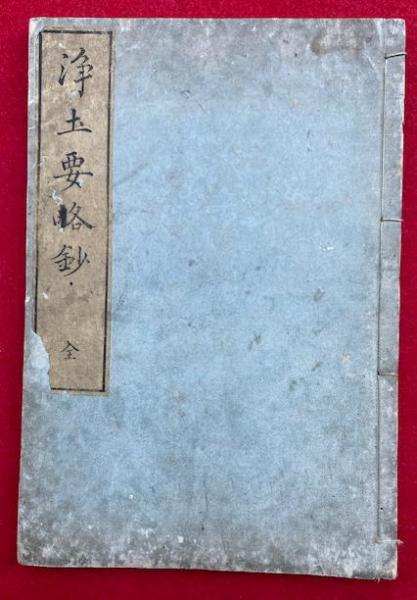 浄土要略鈔
全